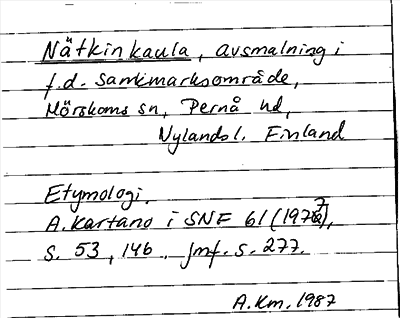 Nätkinkaula, avsmalning i
f.d. samkmarksområde,
Mörskoms sn, Pernå hd,
Nylands l. Finland
Etymologi.
A. Kartano i SNF 61 (1977),
s. 53, 146. jmf. s. 277.
A.Km. 1987